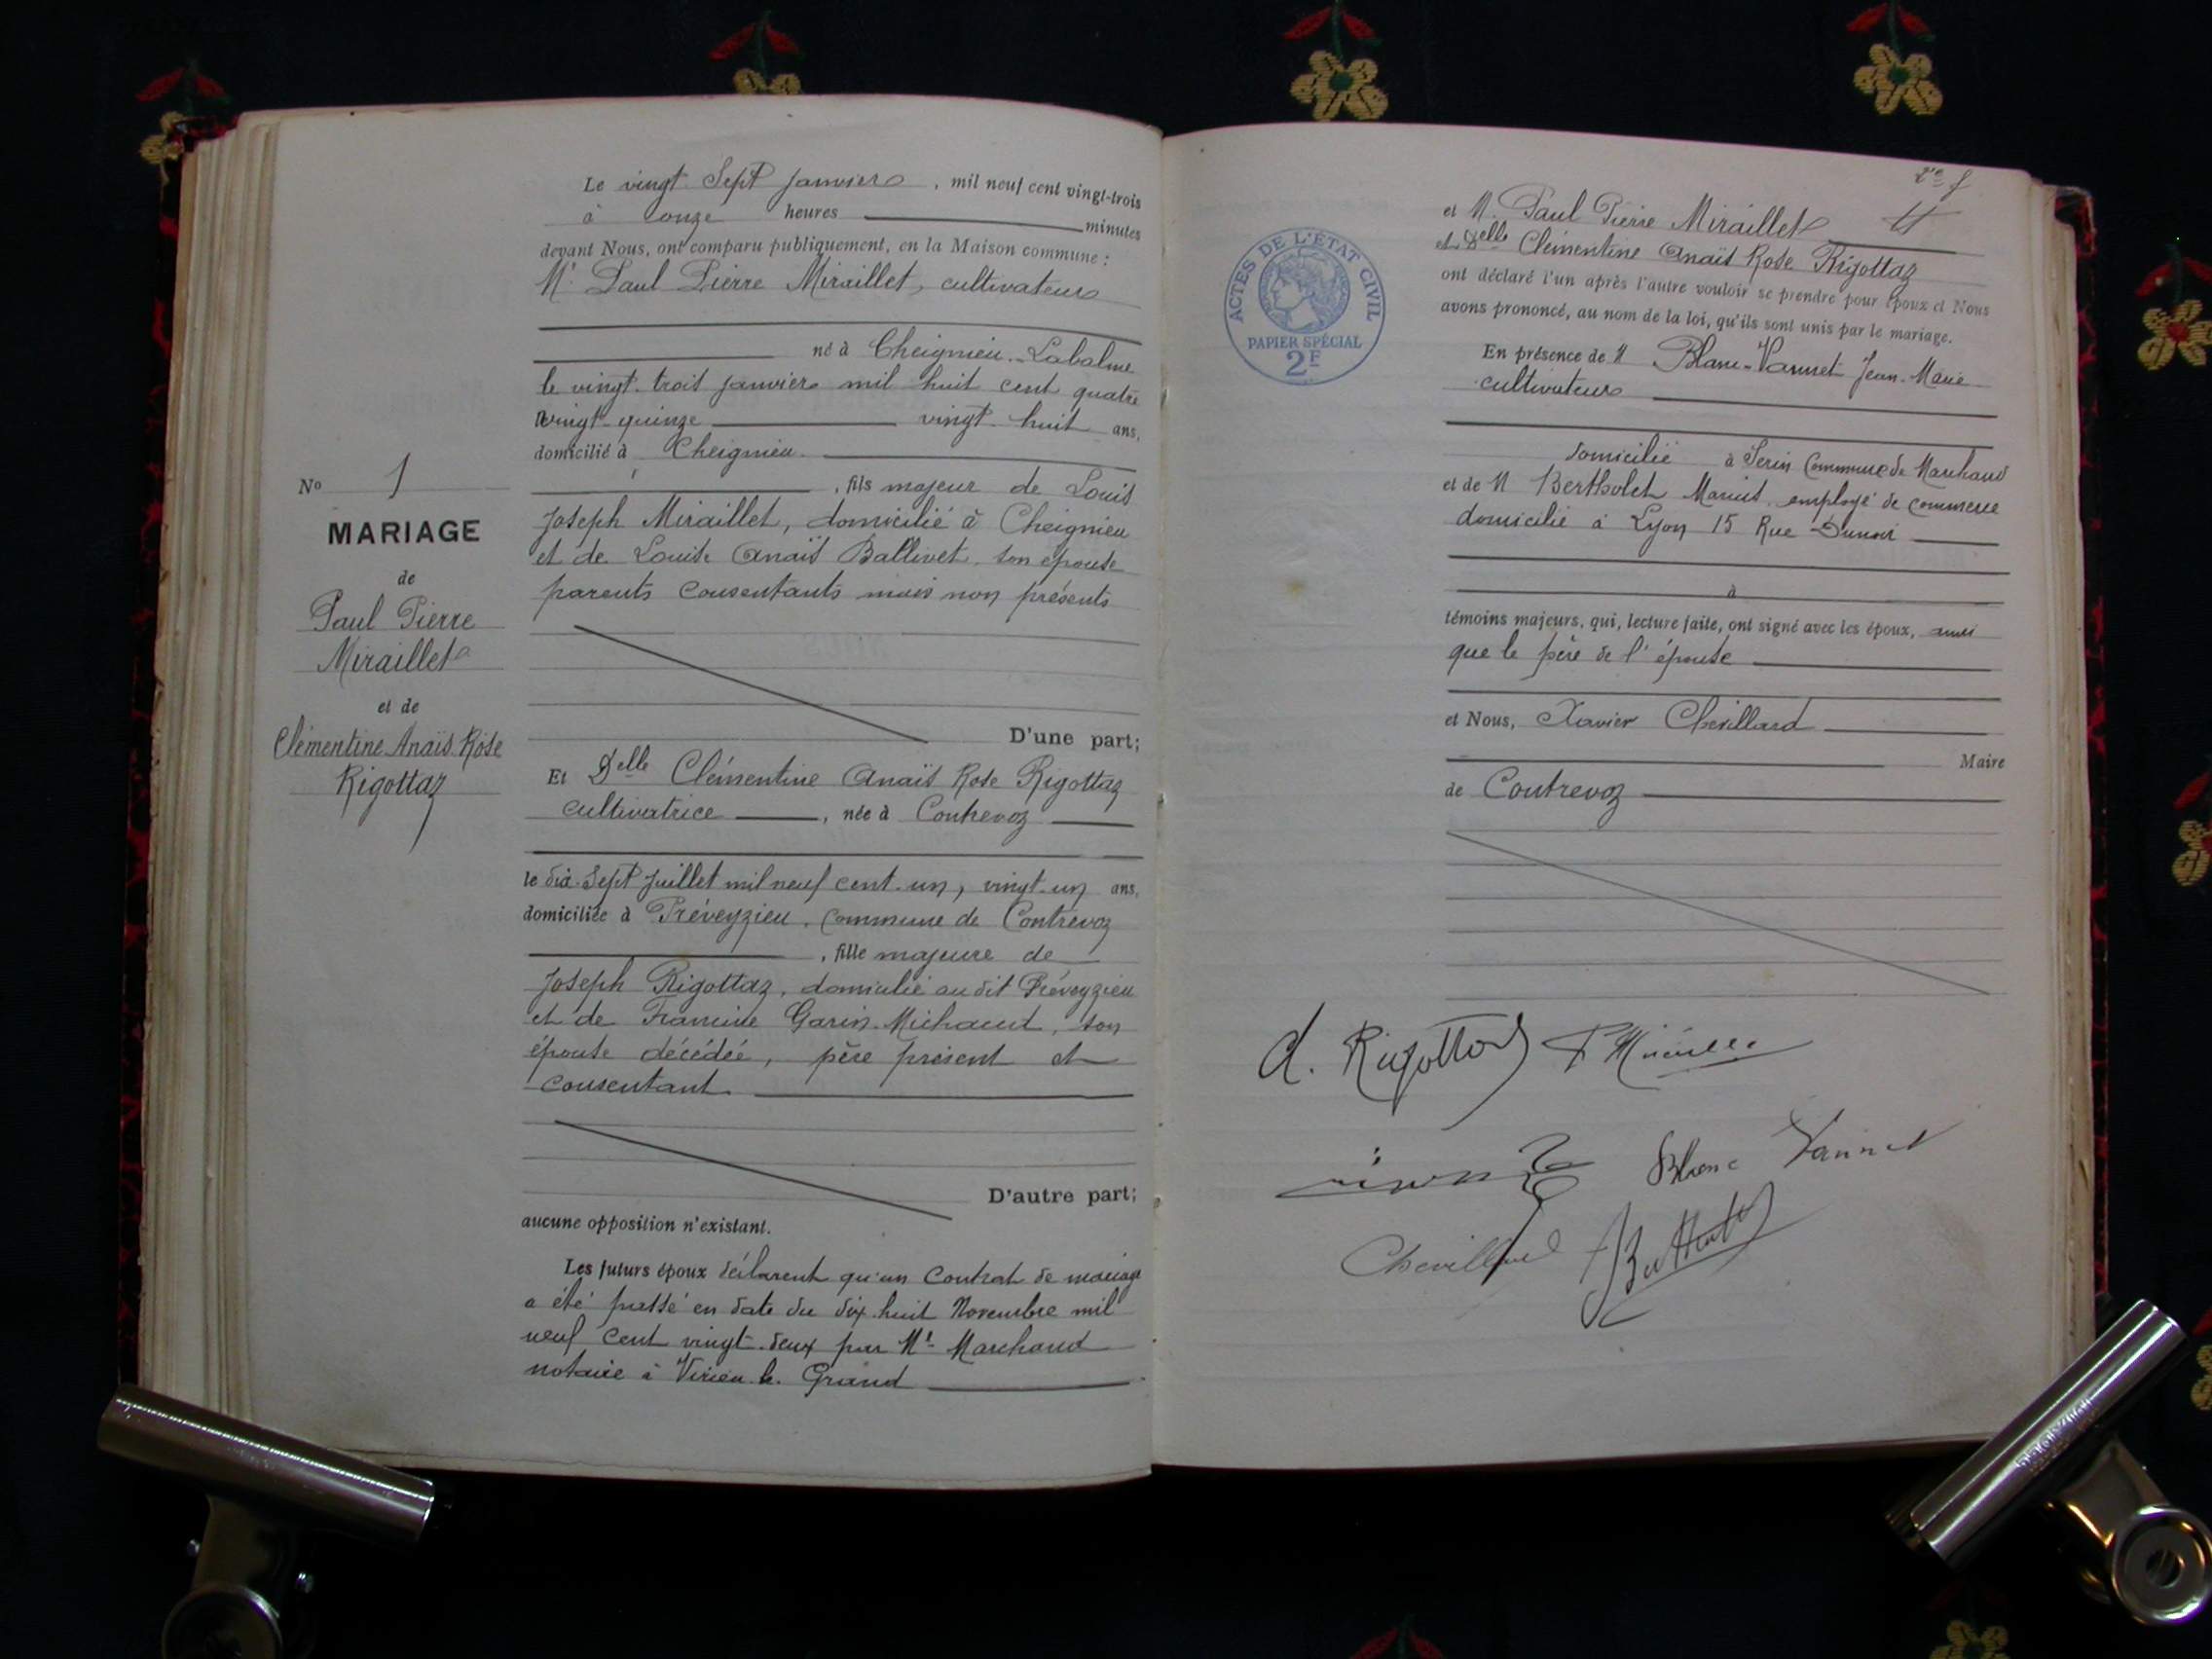 Le vingt Sept janvier, mil neuf cent vingt-trois
à onze heures minutes
devant Nous, ont comparu publiquement, en la Maison commune :
Mr. Paul Pierre Miraillet, cultivateur
né à Cheignieu-Labalme
le vingt-trois janvier mil huit cent quatre
vingt-quinze vingt-huit ans,
domicilié à Cheignieu
, fils majeur de Louis
Joseph Miraillet, domicilié à Cheignieu
et de Louise Anaïs Ballivet, son épouse
parents consentants mais non présents
D'une part;
Et Delle Clémentine Anaïs Rose Rigottaz
cultivatrice, née à Contrevoz
le dix-Sept Juillet mil neuf cent-un, vingt-un ans,
domiciliée à Préveyzieu, commune de Contrevoz
, fille majeure de
Joseph Rigottaz, domicilié au dit Préveyzieu
et de Francine Garin-Michaud, son
épouse décédée, père présent et
consentant
D'autre part;
aucune opposition n'existant.
Les futurs époux déclarent qu'un Contrat de mariage
a été passé en date du dix-huit Novembre mil
neuf cent vingt-deux par Me Marchand
notaire à Virieu-le-Grand
No 1
MARIAGE
de
Paul Pierre
Miraillet
et de
Clémentine Anaïs Rose
Rigottaz
2e f
et M. Paul Pierre Miraillet
et Delle Clémentine Anaïs Rose Rigottaz
ont déclaré l'un après l'autre vouloir se prendre pour époux et Nous
avons prononcé, au nom de la loi, qu'ils sont unis par le mariage.
En présence de M Blanc-Vannet Jean-Marie
cultivateur
domicilié à Serin Commune de Marchand
et de M Bertholet Marius, employé de commerce
domicilié à Lyon 15 Rue Dunoir
à
témoins majeurs, qui, lecture faite, ont signé avec les époux, ainsi
que le père de l'épouse
et Nous, Xavier Chevillard
Maire
de Contrevoz
ACTES DE L'ÉTAT CIVIL
PAPIER SPÉCIAL
2F
A. Rigottaz P Miraillet
Blanc Vannet
Chevillard